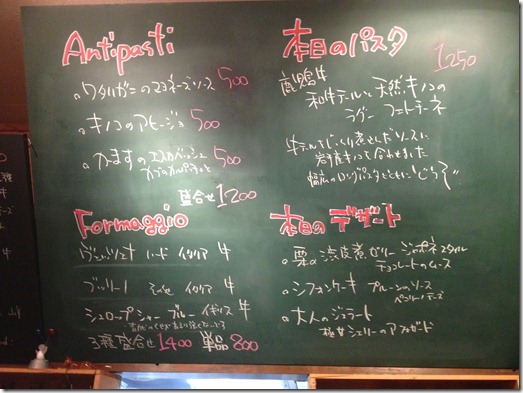 Antipasti
ワタリガニのマヨネーズソース 500
キノコのアヒージョ 500
かますのエスカベッシュ 500
盛合せ 1200
Formaggio
ハード イタリア 牛
イタリア 牛
シュロップシャー ブルー イギリス 牛
3種盛合せ 1400 単品 800
本日のパスタ 1250
鹿児島
和牛テールと天然キノコの
ラグー フェットチーネ
牛テールをじっくり煮こんだソースに
岩手産キノコを合わせました
幅広のロングパスタとともに
本日のデザート
栗の渋皮煮ゼリー ジャポネスタイル
チョコレートのムース
シフォンケーキ プルーンのソース
大人のジェラート
極甘シェリーのアフォガード